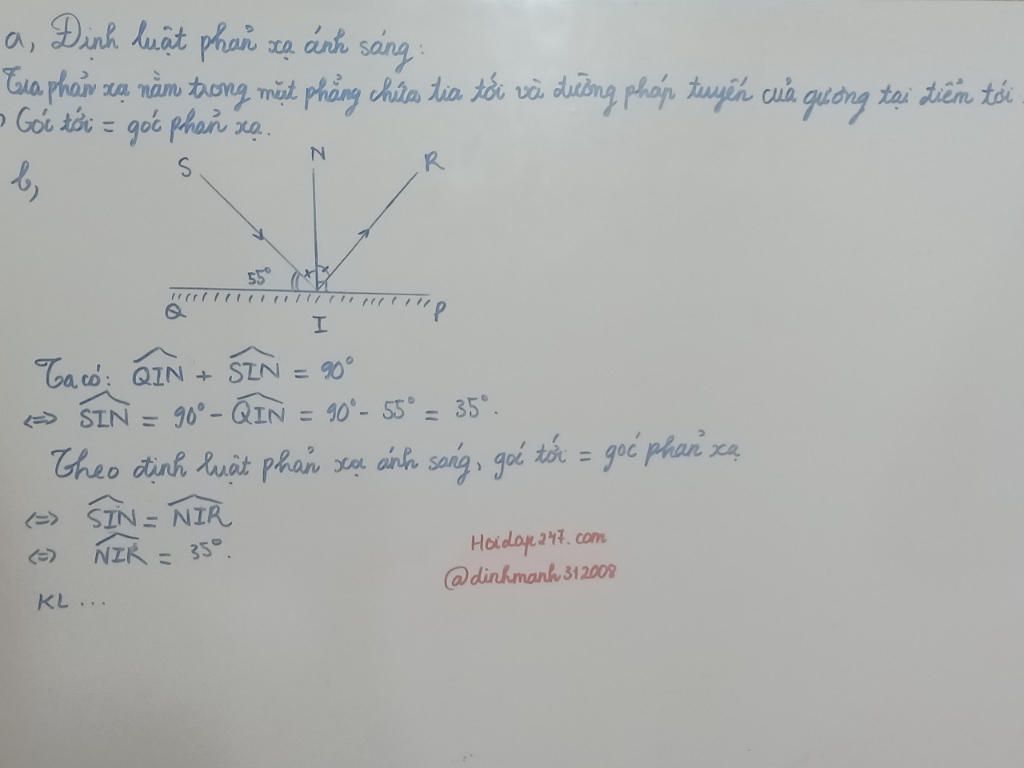 a, Định luật phản xạ ánh sáng:
Tia phản xạ nằm trong mặt phẳng chứa tia tới và đường pháp tuyến của gương tại điểm tới
Góc tới = góc phản xạ.
b,
S
N
R
55°
Q
I
P
Ta có: QIN + SIN = 90°
<=> SIN = 90° - QIN = 90° - 55° = 35°.
Theo định luật phản xạ ánh sáng, góc tới = góc phản xạ
<=> SIN = NIR
<=> NIR = 35°.
KL ...
Hoidap247.com
@dinhmanh312008